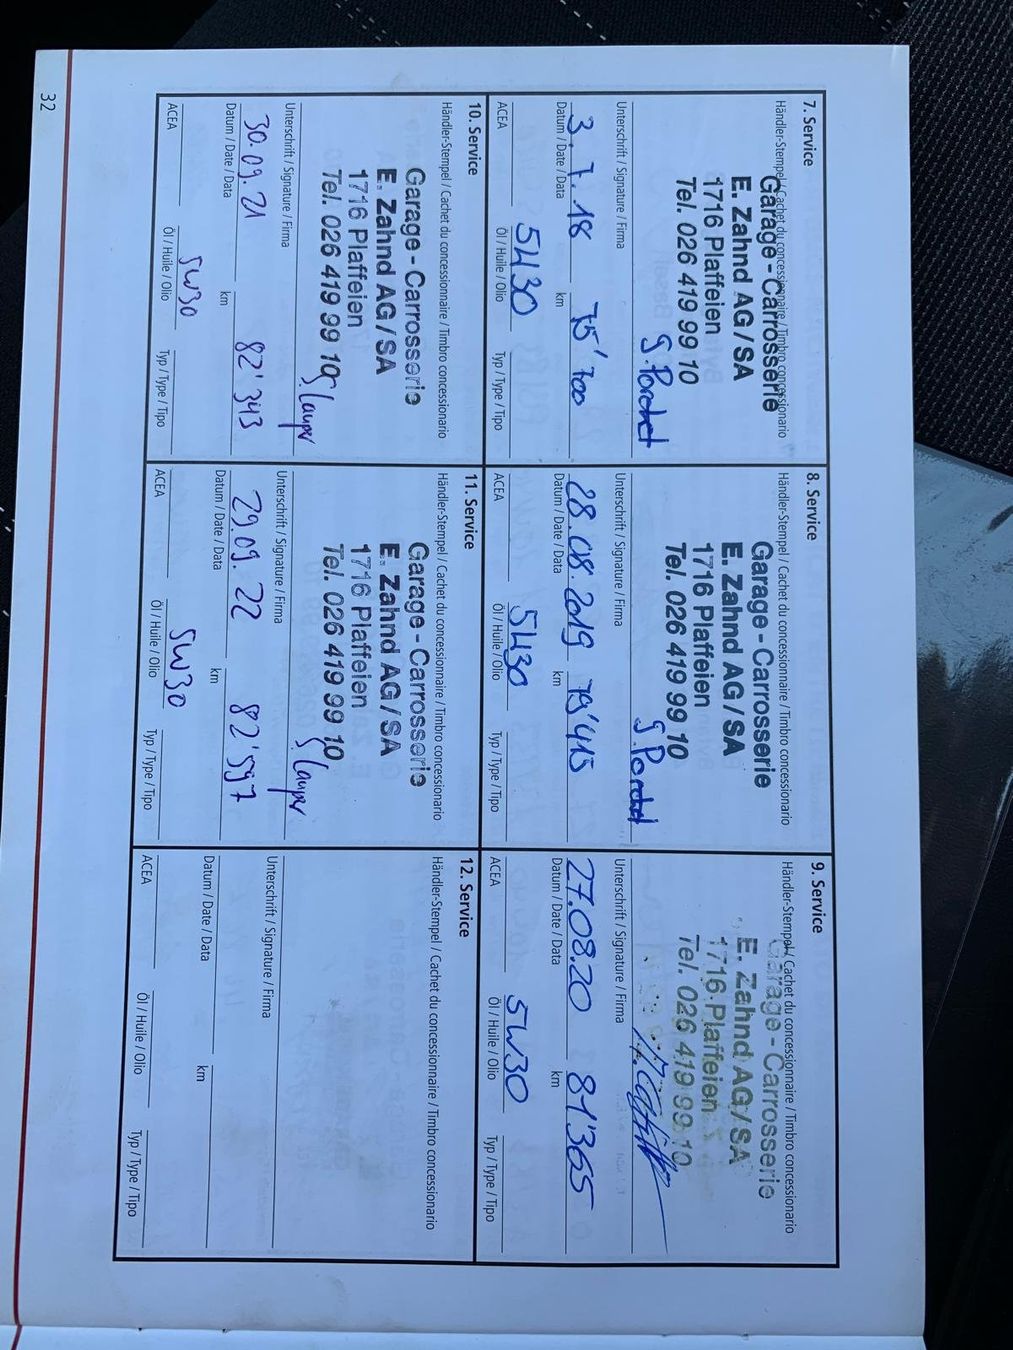 7. Service
Händler-Stempel / Cachet du concessionnaire / Timbro concessionario
Garage - Carrosserie
E. Zahnd AG / SA
1716 Plaffeien
Tel. 026 419 99 10
Unterschrift / Signature / Firma
3.7.18 75'700
Datum / Date / Data km
5W30
ACEA Öl / Huile / Olio Typ / Type / Tipo
8. Service
Händler-Stempel / Cachet du concessionnaire / Timbro concessionario
Garage - Carrosserie
E. Zahnd AG / SA
1716 Plaffeien
Tel. 026 419 99 10
Unterschrift / Signature / Firma
28.08.2019 79'415
Datum / Date / Data km
5W30
ACEA Öl / Huile / Olio Typ / Type / Tipo
9. Service
Händler-Stempel / Cachet du concessionnaire / Timbro concessionario
Garage - Carrosserie
E. Zahnd AG / SA
1716 Plaffeien
Tel. 026 419 99 10
Unterschrift / Signature / Firma
27.08.20 81'365
Datum / Date / Data km
5W30
ACEA Öl / Huile / Olio Typ / Type / Tipo
10. Service
Händler-Stempel / Cachet du concessionnaire / Timbro concessionario
Garage - Carrosserie
E. Zahnd AG / SA
1716 Plaffeien
Tel. 026 419 99 10
Unterschrift / Signature / Firma
30.09.21 82'343
Datum / Date / Data km
5W30
ACEA Öl / Huile / Olio Typ / Type / Tipo
11. Service
Händler-Stempel / Cachet du concessionnaire / Timbro concessionario
Garage - Carrosserie
E. Zahnd AG / SA
1716 Plaffeien
Tel. 026 419 99 10
Unterschrift / Signature / Firma
29.09.22 82'597
Datum / Date / Data km
5W30
ACEA Öl / Huile / Olio Typ / Type / Tipo
12. Service
Händler-Stempel / Cachet du concessionnaire / Timbro concessionario
Unterschrift / Signature / Firma
Datum / Date / Data km
ACEA Öl / Huile / Olio Typ / Type / Tipo
32